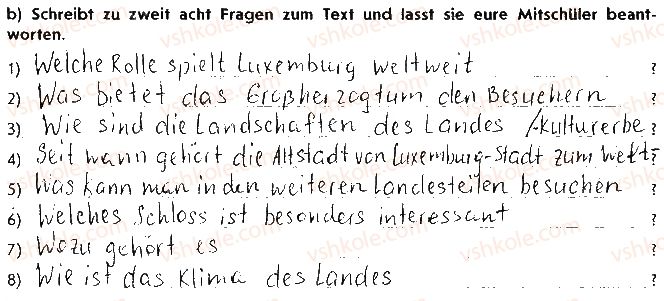 b) Schreibt zu zweit acht Fragen zum Text und lasst sie eure Mitschüler beant-
worten.
1) Welche Rolle spielt Luxemburg weltweit ?
2) Was bietet das Großherzogtum den Besuchern ?
3) Wie sind die Landschaften des Landes ?
/kulturerbe
4) Seit wann gehört die Altstadt von Luxemburg-Stadt zum Welt- ?
5) Was kann man in den weiteren Landesteilen besuchen ?
6) Welches Schloss ist besonders interessant ?
7) Wozu gehört es ?
8) Wie ist das Klima des Landes ?